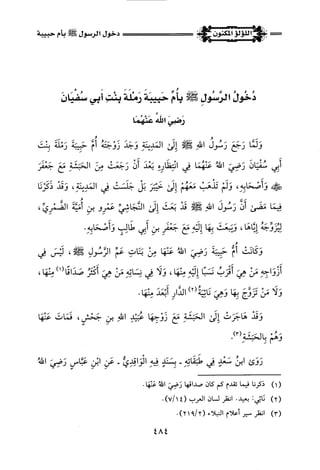 اللؤلؤ المكنون
دخول الرسول ﷺ بأم حبيبة
دُخُولُ الرَّسُولِ ﷺ بِأُمِّ حَبِيبَةَ رَمْلَةَ بِنْتِ أَبِي سُفْيَانَ
رَضِيَ اللهُ عَنْهُمَا
وَلَمَّا رَجَعَ رَسُولُ اللهِ ﷺ إِلَى المَدِينَةِ وَجَدَ زَوْجَتَهُ أُمَّ حَبِيبَةَ رَمْلَةَ بِنْتَ
أَبِي سُفْيَانَ رَضِيَ اللهُ عَنْهُمَا فِي انْتِظَارِهِ بَعْدَ أَنْ رَجَعَتْ مِنَ الحَبَشَةِ مَعَ جَعْفَرٍ
ﷺ وَأَصْحَابِهِ، وَلَمْ تَذْهَبْ مَعَهُمْ إِلَى خَيْبَرَ بَلْ جَلَسَتْ فِي المَدِينَةِ، وَقَدْ ذَكَرْنَا
فِيمَا مَضَى أَنَّ رَسُولَ اللهِ ﷺ قَدْ بَعَثَ إِلَى النَّجَاشِيِّ عَمْرَو بنَ أُمَيَّةَ الضَّمْرِيَّ،
لِيُزَوِّجَهُ إِيَّاهَا، وَيَبْعَثَ بِهَا إِلَيْهِ مَعَ جَعْفَرِ بنِ أَبِي طَالِبٍ وَأَصْحَابِهِ.
وَكَانَتْ أُمُّ حَبِيبَةَ رَضِيَ اللهُ عَنْهَا مِنْ بَنَاتِ عَمِّ الرَّسُولِ ﷺ، لَيْسَ فِي
أَزْوَاجِهِ مَنْ هِيَ أَقْرَبُ نَسَبًا إِلَيْهِ مِنْهَا، وَلَا فِي نِسَائِهِ مَنْ هِيَ أَكْثَرُ صَدَاقًا(١) مِنْهَا،
وَلَا مَنْ تَزَوَّجَ بِهَا وَهِيَ نَائِيَةُ(٢) الدَّارِ أَبْعَدَ مِنْهَا.
وَقَدْ هَاجَرَتْ إِلَى الحَبَشَةِ مَعَ زَوْجِهَا عُبَيْدِ اللهِ بنِ جَحْشٍ، فَمَاتَ عَنْهَا
وَهُمْ بِالحَبَشَةِ(٣).
رَوَى ابنُ سَعْدٍ فِي طَبَقَاتِهِ - بِسَنَدٍ فِيهِ الْوَاقِدِيُّ - عَنِ ابْنِ عَبَّاسٍ رَضِيَ اللهُ
(١) ذكرنا فيما تقدم كم كان صداقها رَضِيَ اللهُ عَنْهَا.
(٢) نَائِي: بعيد. انظر لسان العرب (٧/١٤).
(٣) انظر سير أعلام النبلاء (٢١٩/٢).
٤٨٤